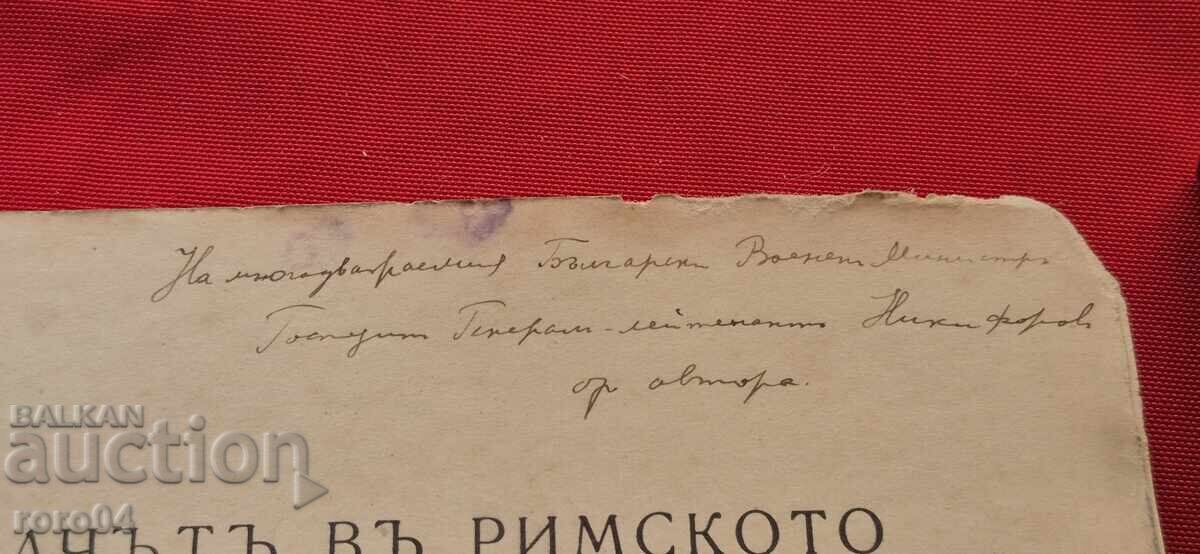 На многоуважаемия Български Военен Министръ
Господинъ Генералъ-лейтенантъ Никифоровъ
от автора.
BALKAN
auction
roro04
АЧЪТЪ ВЪ РИМСКОТО